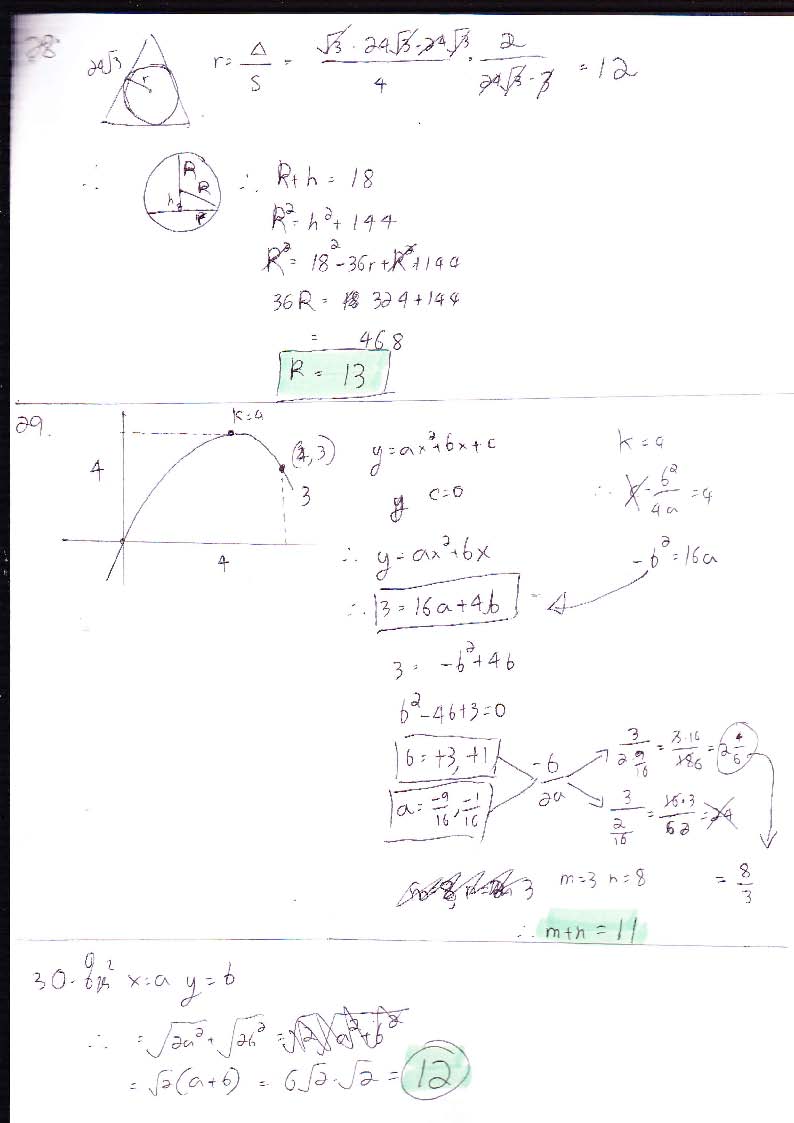 28
24√3
r
r = Δ/S = (√3 · 24√3 · 24√3)/4 · 2/(24√3 · 3) = 12
∴
R
R
h
r
∴ R+h = 18
R² = h² + 144
R² = 18² - 36r + R² + 144
36R = 324 + 144
= 468
R = 13
29.
k=4
4
(4,3)
3
4
y = ax² + bx + c
y c=0
∴ y = ax² + bx
∴ 3 = 16a + 4b
3 = -b² + 4b
b² - 4b + 3 = 0
b = +3, +1
a = -9/16, -1/16
k = 4
∴ -b²/4a = 4
-b² = 16a
-b/2a
3/(2 9/16) = 3·16/186 = 2 4/6
3/(2/16) = 16·3/62 = 24
= 8/3
m=3 n=8
∴ m+n = 11
30. x=a y=b
∴ = √2a² + √2b² = √2√a²+b²
= √2(a+b) = 6√2·√2 = 12